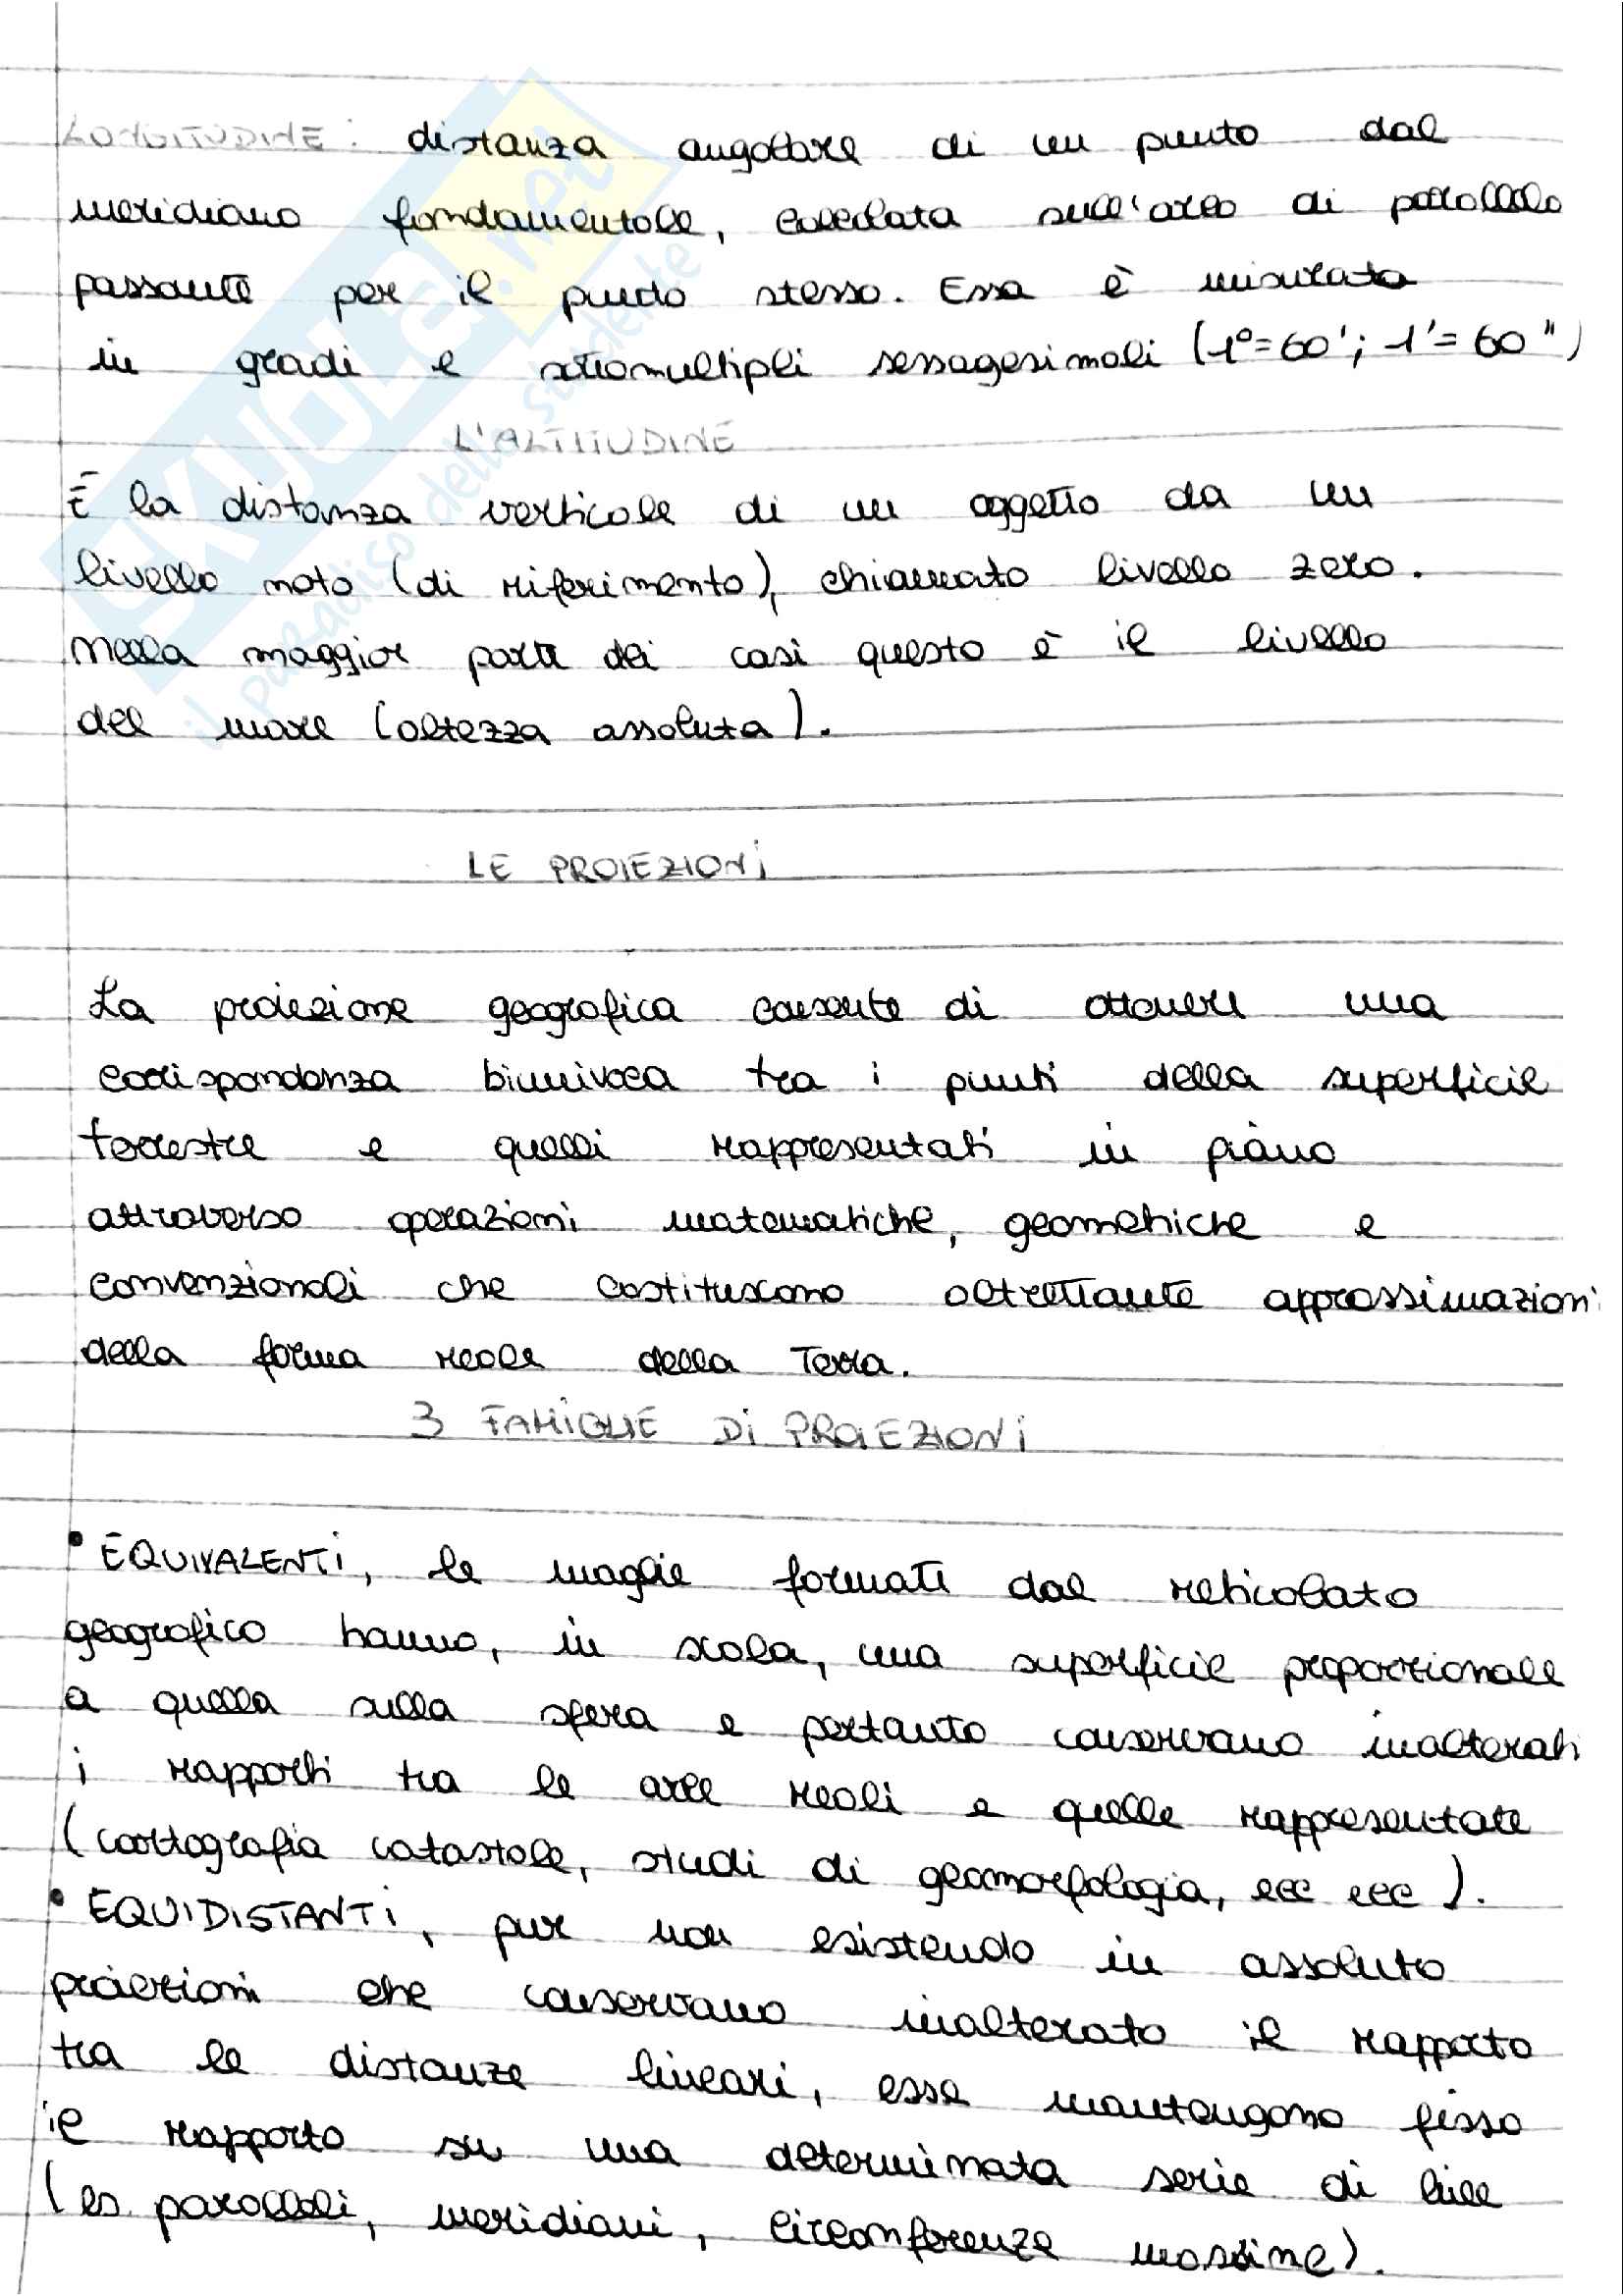 LONGITUDINE: distanza angolare di un punto dal
meridiano fondamentale, calcolata sull'arco di parallelo
passante per il punto stesso. Essa è misurata
in gradi e sottomultipli sessagesimali (1°=60'; 1'=60")
L'ALTITUDINE
È la distanza verticale di un oggetto da un
livello noto (di riferimento), chiamato livello zero.
Nella maggior parte dei casi questo è il livello
del mare (altezza assoluta).
LE PROIEZIONI
La proiezione geografica consente di ottenere una
corrispondenza biunivoca tra i punti della superficie
terrestre e quelli rappresentati in piano
attraverso operazioni matematiche, geometriche e
convenzionali che costituiscono altrettante approssimazioni
della forma reale della Terra.
3 FAMIGLIE DI PROIEZIONI
• EQUIVALENTI, le maglie formate dal reticolato
geografico hanno, in scala, una superficie proporzionale
a quella sulla sfera e pertanto conservano inalterati
i rapporti tra le aree reali e quelle rappresentate
(cartografia catastale, studi di geomorfologia, ecc ecc).
• EQUIDISTANTI, pur non esistendo in assoluto
proiezioni che conservano inalterato il rapporto
tra le distanze lineari, esse mantengono fisso
il rapporto su una determinata serie di linee
(es. paralleli, meridiani, circonferenze massime).
SKUOLA.net
il paradiso dello studente